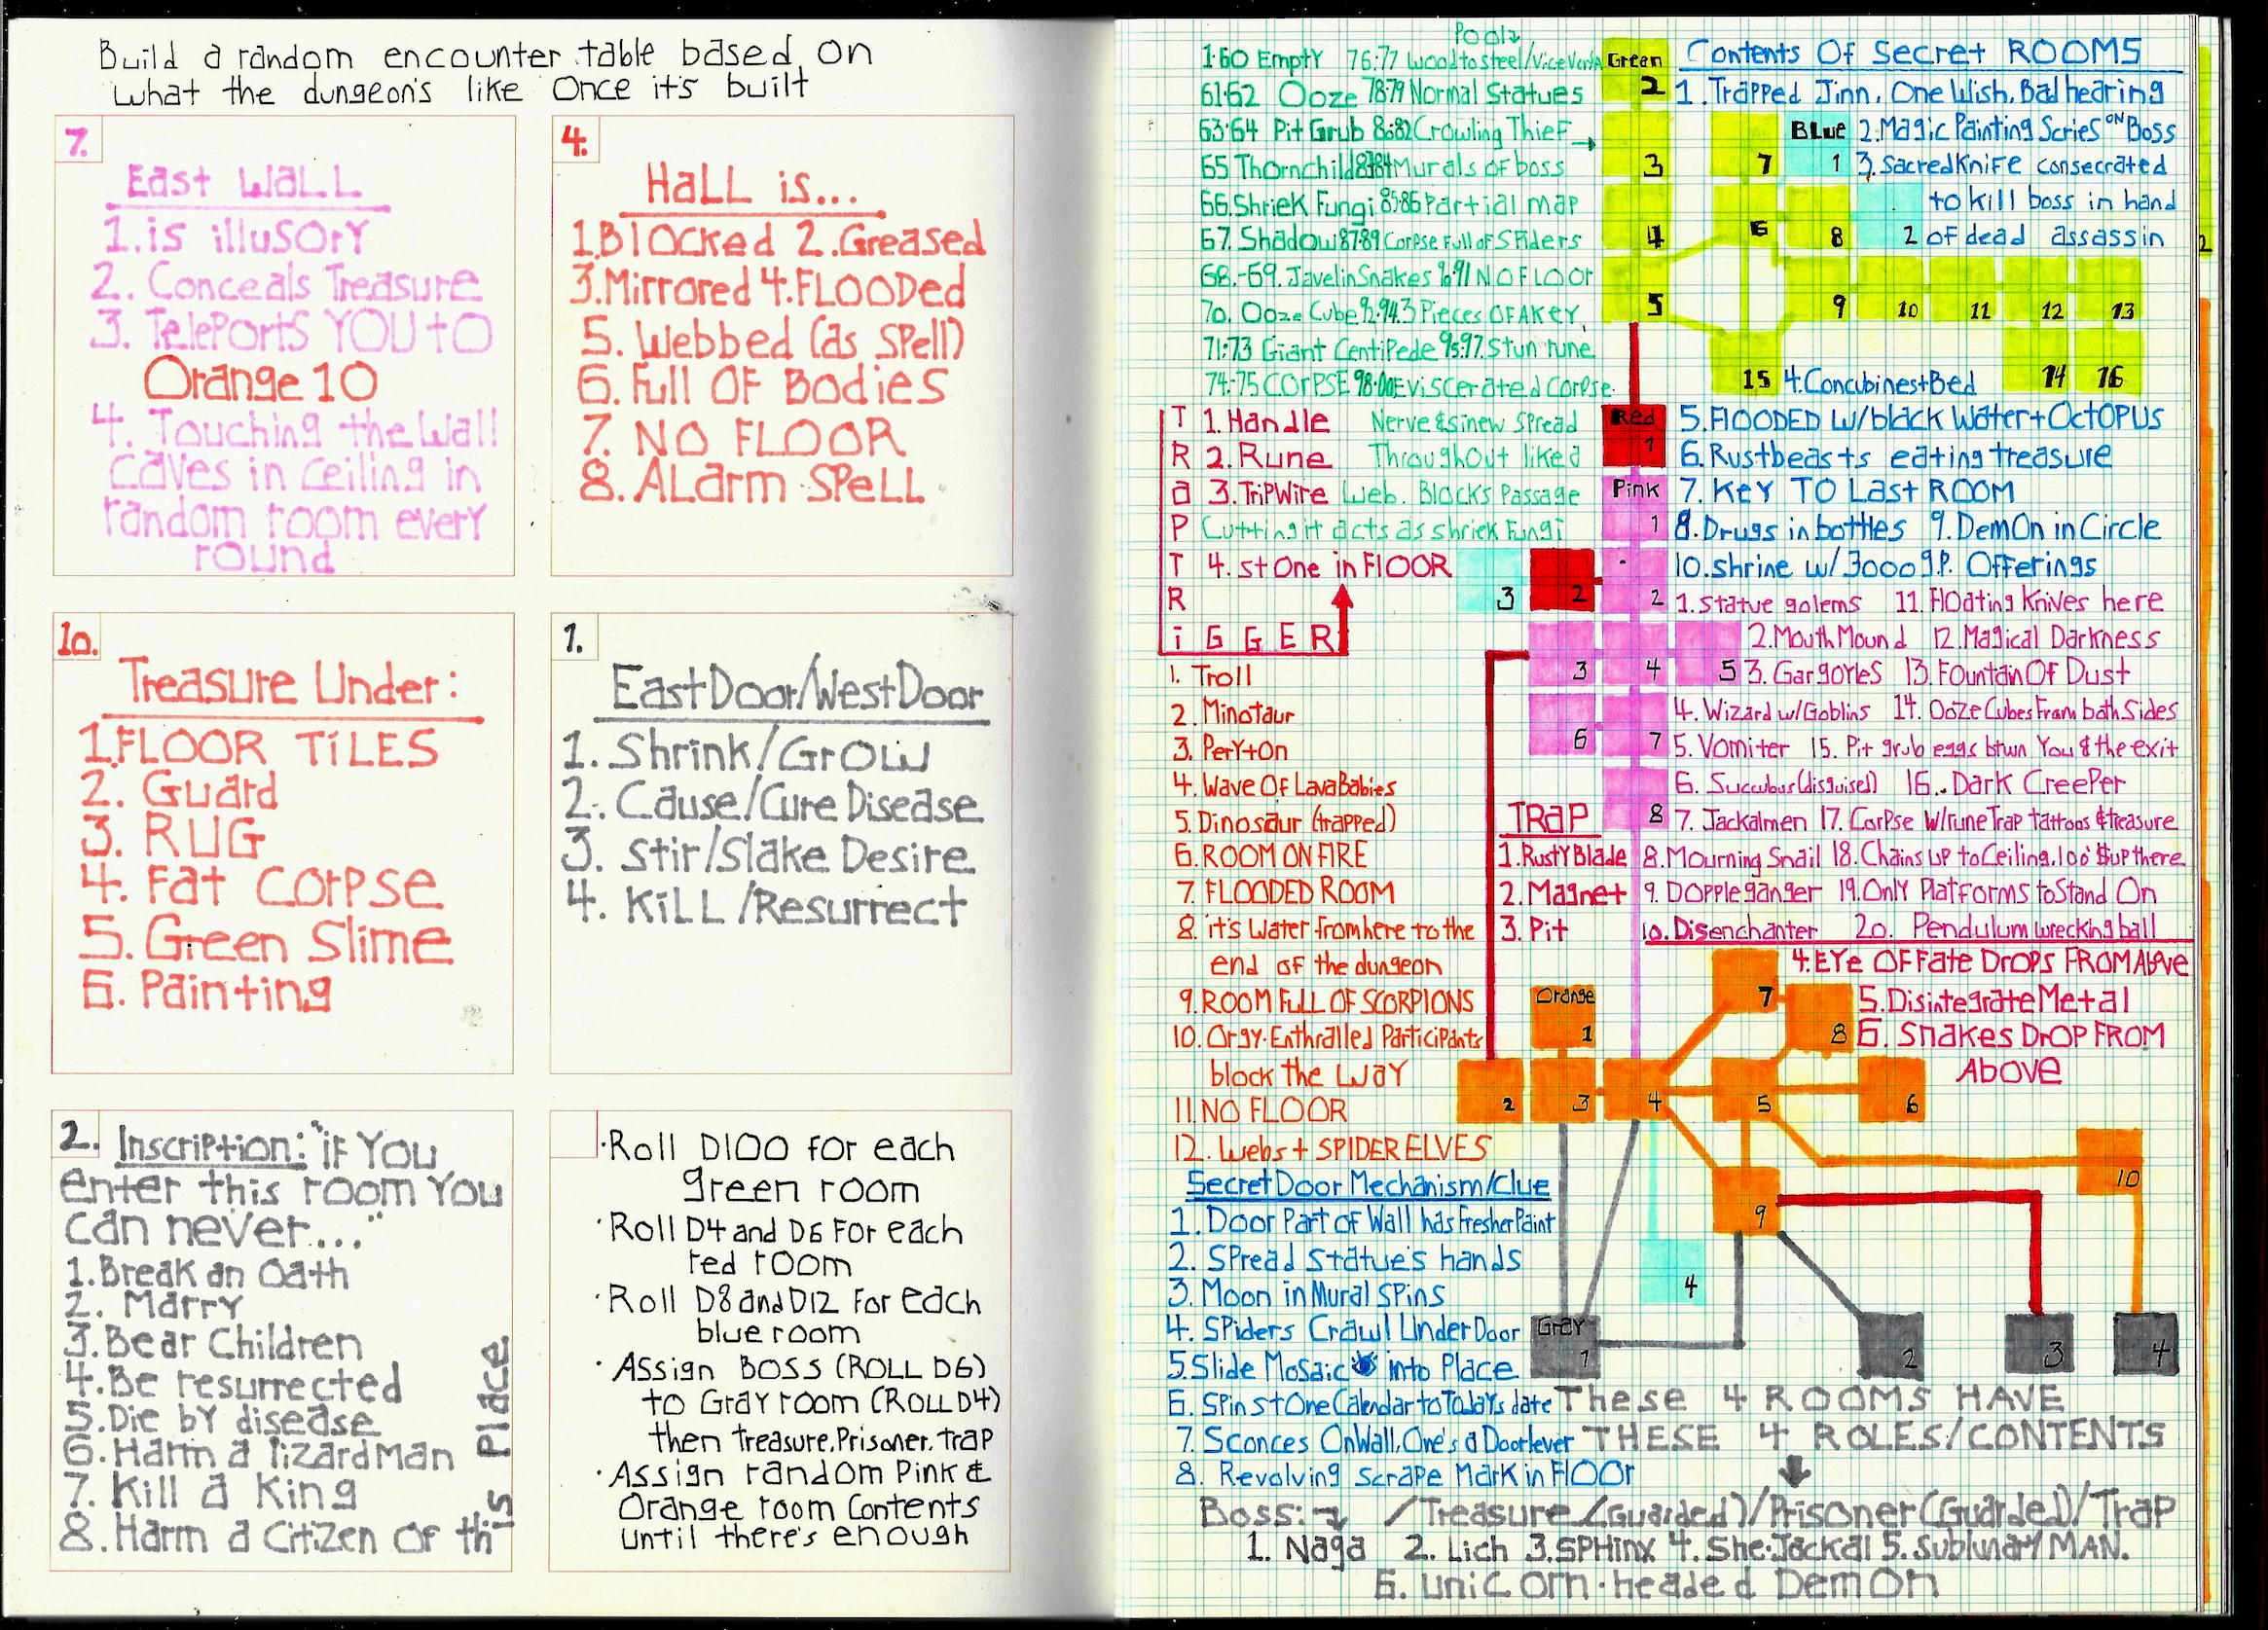 Build a random encounter table based on
what the dungeon's like Once it's built
7.
East WALL
1. is illusory
2. Conceals Treasure
3. TelePorts YOU to
Orange 10
4. Touching the Wall
caves in ceiling in
random room every
round
4.
HaLL is...
1. Blocked 2. Greased
3. Mirrored 4. FLOODed
5. Webbed (as spell)
6. Full OF Bodies
7. NO FLOOR
8. ALarm SPeLL
10.
Treasure Under:
1. FLOOR TiLES
2. Guard
3. RUG
4. Fat Corpse
5. Green Slime
6. Painting
1.
East Door/West Door
1. Shrink/Grow
2. Cause/Cure Disease
3. Stir/Slake Desire
4. KiLL/Resurrect
2. Inscription: "iF YOU
enter this room You
can never..."
1. Break an Oath
2. Marry
3. Bear Children
4. Be resurrected
5. Die by disease
6. Harm a lizard man
7. Kill a King
8. Harm a Citizen OF this Place
·Roll D100 for each
green room
·Roll D4 and D6 For each
red room
·Roll D8 and D12 For each
blue room
·Assign BOSS (ROLL D6)
to Gray room (ROLL D4)
then treasure, Prisoner, trap
·Assign random Pink &
Orange room Contents
until there's enough
Pools
1-60 Empty 76-77 wood to steel/Vice Versa
61-62 Ooze 78-79 Normal Statues
63-64 Pit Grub 80-82 Crawling Thief
65 Thornchild 83-84 Murals of boss
66. Shriek Fungi 85-86 Partial map
67. Shadow 87-89 Corpse Full of Spiders
68.-69. Javelin Snakes 90-91 NO FLOOr
70. Ooze Cube 92-94. 3 Pieces OF A Key
71-73 Giant Centipede 95-97. Stun rune
74-75 COrPSE 98-00 Eviscerated Corpse.
Nerve & sinew Spread
Throughout like a
Web. Blocks Passage
Cutting it acts as shriek Fungi
TRaP TRiGGER
1. Handle
2. Rune
3. TriPWire
4. stOne in FlOOR
1. Troll
2. Minotaur
3. Peryton
4. Wave Of Lava Babies
5. Dinosaur (trapped)
6. ROOM ON FIRE
7. FLOODED ROOM
8. it's Water from here to the
end of the dungeon
9. ROOM FULL OF SCORPIONS
10. Orgy. Enthralled Participants
block the Way
11. NO FLOOR
12. Webs + SPIDER ELVES
TRaP
1. Rusty Blade
2. Magnet
3. Pit
4. EYe OF Fate DroPs FROM Above
5. Disintegrate Metal
6. Snakes DrOP FROM
Above
Secret Door Mechanism/Clue
1. Door Part of Wall has Fresher Paint
2. Spread statue's hands
3. Moon in Mural Spins
4. SPiders Crawl Under Door
5. Slide Mosaic into Place
6. Spin stOne Calendar to Today's date
7. Sconces On Wall, One's a Door lever
8. Revolving scrape Mark in FlOOr
Contents Of Secret ROOMS
1. Trapped Jinn. One Wish. Bad hearing
2. Magic Painting Series ON Boss
3. Sacred KniFe consecrated
to kill boss in hand
of dead assassin
4. Concubines + Bed
5. FLOODED W/black Water + OctOPUS
6. Rustbeasts eating treasure
7. Key TO Last ROOM
8. Drugs in bottles 9. DemOn in Circle
10. shrine w/ 3000 g.P. Offerings
1. Statue golems 11. Floating Knives here
2. Mouth Mound 12. Magical Darkness
3. Gargoyles 13. Fountain Of Dust
4. Wizard w/Goblins 14. Ooze Cubes From both Sides
5. Vomiter 15. Pit grub eggs btwn You & the exit
6. Succubus (disguised) 16. Dark Creeper
7. Jackalmen 17. Corpse W/rune Trap tattoos & treasure
8. Mourning Snail 18. Chains up to Ceiling, 100' $ up there
9. Doppleganger 19. Only Platforms to Stand On
10. Disenchanter 20. Pendulum wrecking ball
Green
2
3
4
5
6
7
8
9 10 11 12 13
15 14 16
BLue
1
2
3
4
Red
1
2
Pink
1
2
3 4 5
6 7
8
Orange
1
2 3 4 5 6
7
8
9
10
Gray
1 2 3 4
These 4 ROOMS HAVE
THESE 4 ROLES/CONTENTS
Boss: /Treasure (Guarded)/Prisoner (Guarded)/Trap
1. Naga 2. Lich 3. SPHinx 4. She-Jackal 5. Sublunary MAN.
6. unicorn-headed DemOn
2